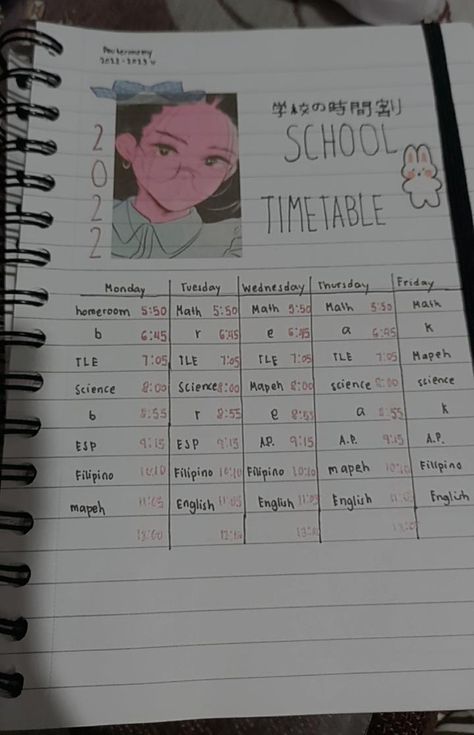 Deuteronomy
2022-2023
2
0
2
2
学校の時間割
SCHOOL
TIMETABLE
Monday Tuesday Wednesday Thursday Friday
homeroom 5:50 Math 5:50 Math 5:50 Math 5:50 Math
b 6:45 r 6:45 e 6:45 a 6:45 k
TLE 7:05 TLE 7:05 TLE 7:05 TLE 7:05 Mapeh
Science 8:00 Science 8:00 Mapeh 8:00 science 8:00 science
b 8:55 r 8:55 e 8:55 a 8:55 k
ESP 9:15 ESP 9:15 A.P. 9:15 A.P. 9:15 A.P.
Filipino 10:10 Filipino 10:10 Filipino 10:10 mapeh 10:10 Filipino
mapeh 11:05 English 11:05 English 11:05 English 11:05 English